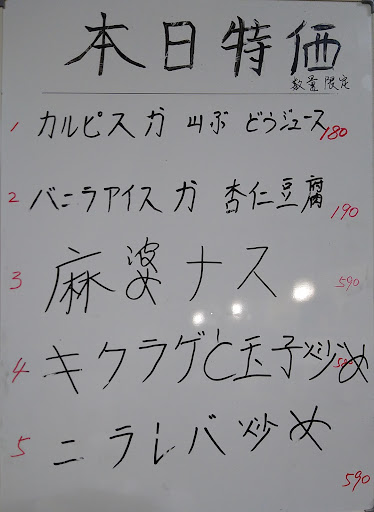 本日特価
数量限定
1 カルピス カ 山ぶ どうジュース 180
2 バニラアイス カ 杏仁豆腐 190
3 麻婆ナス 590
4 キクラゲと玉子炒め 590
5 ニラレバ炒め
590